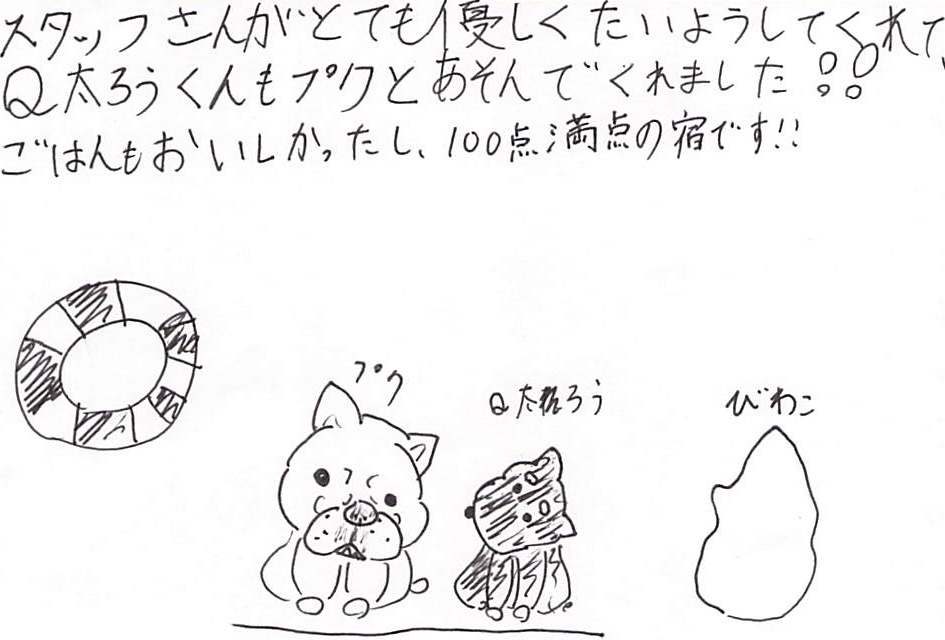 スタッフさんがとても優しくたいようしてくれて、
Q太ろうくんもプクとあそんでくれました!!
ごはんもおいしかったし、100点満点の宿です!!
プク
Q太ろう
びわこ